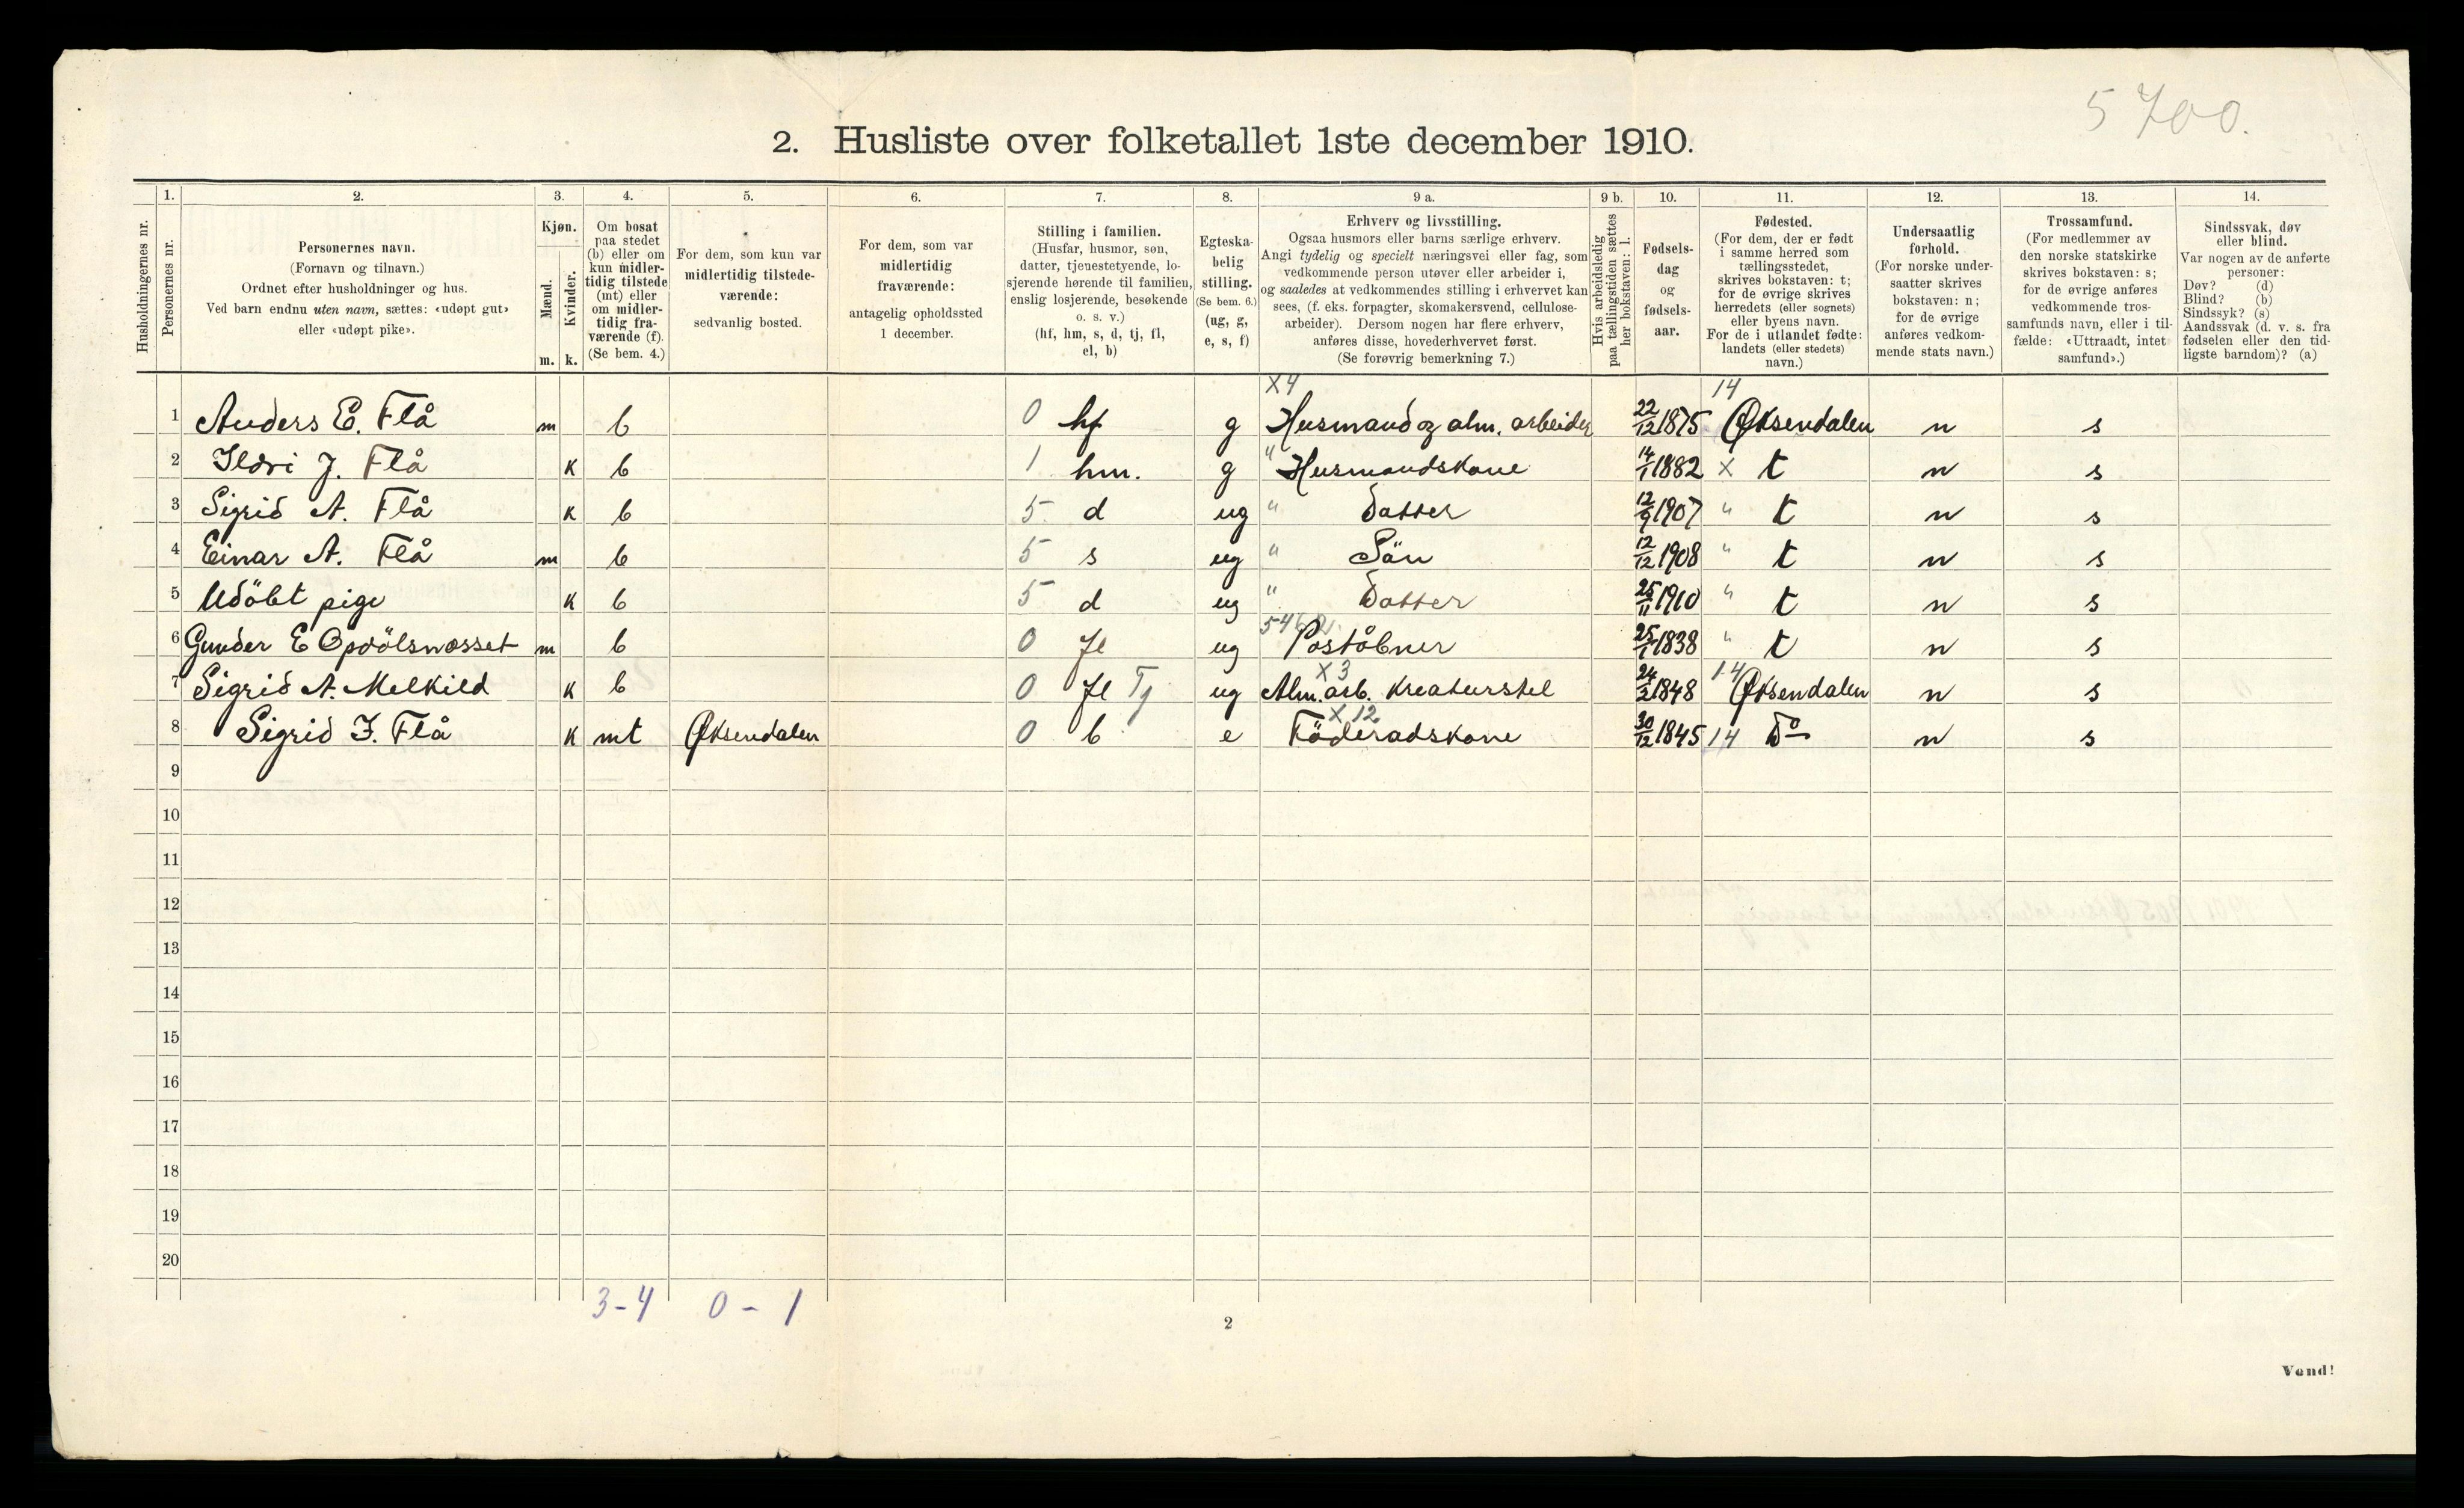 5700.
2. Husliste over folketallet 1ste december 1910.
Husholdningernes nr.
1. Personernes nr.
2. Personernes navn.
(Fornavn og tilnavn.)
Ordnet efter husholdninger og hus.
Ved barn endnu uten navn, sættes: «udøpt gut»
eller «udøpt pike».
3. Kjøn.
Mænd. m.
Kvinder. k.
4. Om bosat
paa stedet
(b) eller om
kun midler-
tidig tilstede
(mt) eller
om midler-
tidig fra-
værende (f).
(Se bem. 4.)
5. For dem, som kun var
midlertidig tilstede-
værende:
sedvanlig bosted.
6. For dem, som var
midlertidig
fraværende:
antagelig opholdssted
1 december.
7. Stilling i familien.
(Husfar, husmor, søn,
datter, tjenestetyende, lo-
sjerende hørende til familien,
enslig losjerende, besøkende
o. s. v.)
(hf, hm, s, d, tj, fl,
el, b)
8. Egteska-
belig
stilling.
(Se bem. 6.)
(ug, g,
e, s, f)
9 a. Erhverv og livsstilling.
Ogsaa husmors eller barns særlige erhverv.
Angi tydelig og specielt næringsvei eller fag, som
vedkommende person utøver eller arbeider i,
og saaledes at vedkommendes stilling i erhvervet kan
sees, (f. eks. forpagter, skomakersvend, cellulose-
arbeider). Dersom nogen har flere erhverv,
anføres disse, hovederhvervet først.
(Se forøvrig bemerkning 7.)
9 b. Hvis arbeidsledig
paa tællingstiden sættes
her bokstaven: l.
10. Fødsels-
dag
og
fødsels-
aar.
11. Fødested.
(For dem, der er født
i samme herred som
tællingsstedet,
skrives bokstaven: t;
for de øvrige skrives
herredets (eller sognets)
eller byens navn.
For de i utlandet fødte:
landets (eller stedets)
navn.)
12. Undersaatlig
forhold.
(For norske under-
saatter skrives
bokstaven: n;
for de øvrige
anføres vedkom-
mende stats navn.)
13. Trossamfund.
(For medlemmer av
den norske statskirke
skrives bokstaven: s;
for de øvrige anføres
vedkommende tros-
samfunds navn, eller i til-
fælde: «Uttraadt, intet
samfund».)
14. Sindssvak, døv
eller blind.
Var nogen av de anførte
personer:
Døv? (d)
Blind? (b)
Sindssyk? (s)
Aandssvak (d. v. s. fra
fødselen eller den tid-
ligste barndom)? (a)
X4 14
1 Anders E. Flå m b 0 hf g Husmand og alm. arbeider 22/12 1875 Øksendalen n s
2 Ildri J. Flå k b 1 hm. g " Husmandskone 14/1 1882 x t n s
3 Sigrid A. Flå k b 5 d ug " Datter 12/9 1907 " t n s
4 Einar A. Flå m b 5 s ug " Sön 12/12 1908 " t n s
5 Udöbt pige k b 5 d ug " Datter 25/11 1910 " t n s
5462.
6 Gunder E Opdölsnæsset m b 0 fl ug Poståbner 25/1 1838 " t n s
X3 14
7 Sigrid A. Melkild k b 0 fl Tj ug Alm. arb. Kreaturstel 24/2 1848 Øksendalen n s
X 12
8 Sigrid I. Flå k mt Øksendalen 0 b e Föderadskone 30/12 1845 14 Do n s
9
10
11
12
13
14
15
16
17
18
19
20
3-4 0-1
2
Vend!